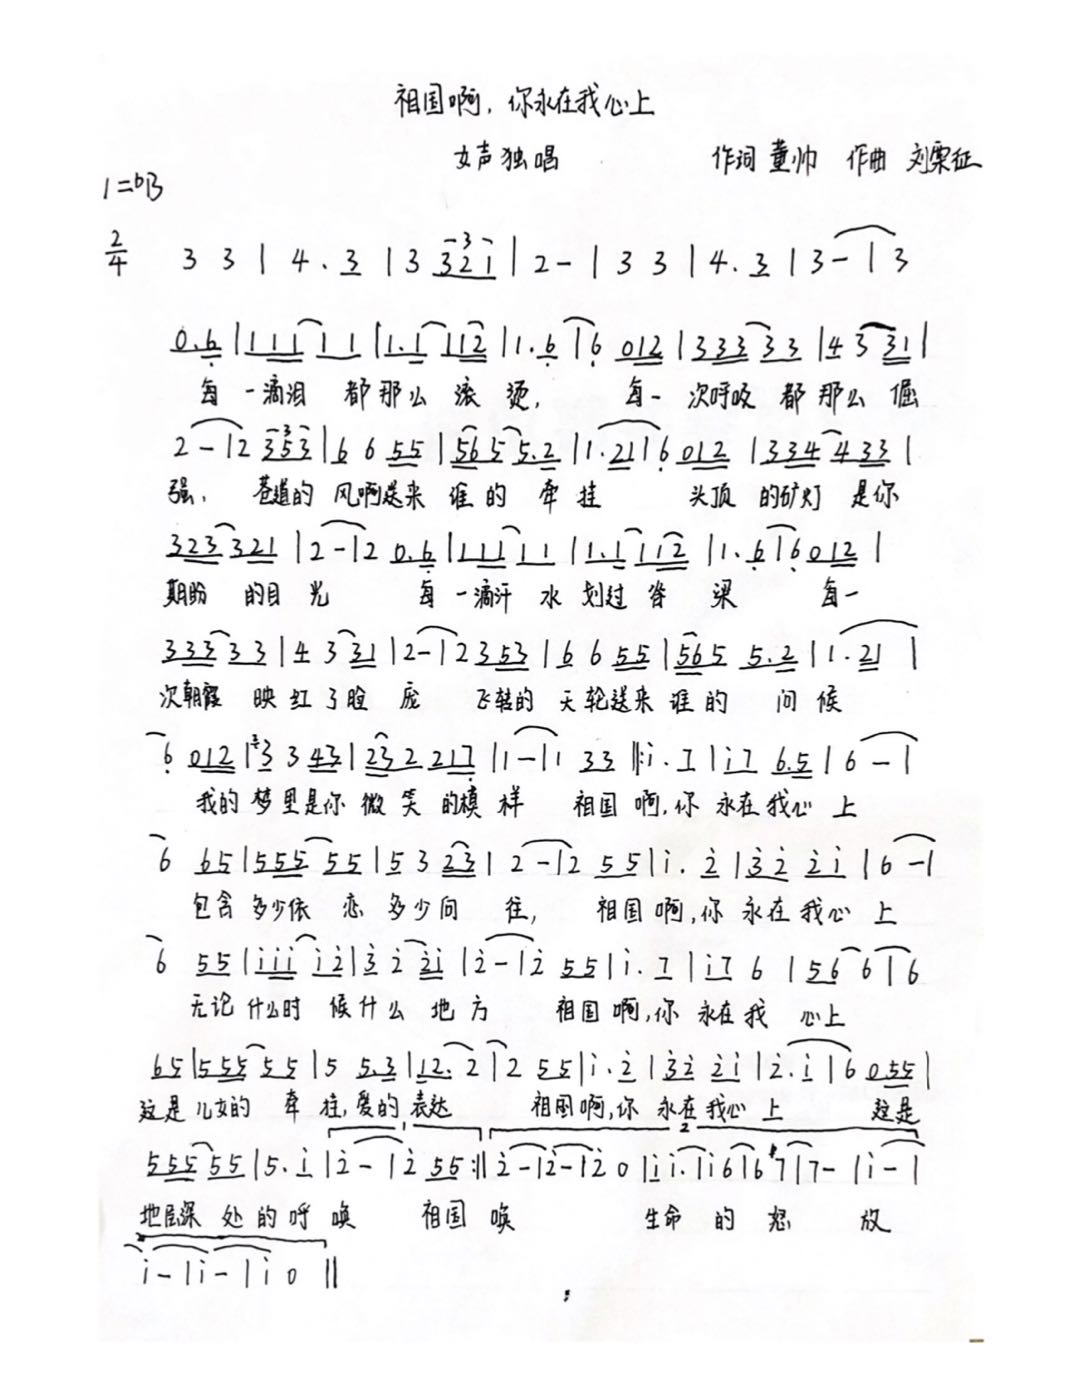 祖国啊，你永在我心上
女声独唱 作词 董帅 作曲 刘栗征
1=♭B
2/4 3 3 | 4 . 3 | 3 3 2 1 | 2 - | 3 3 | 4 . 3 | 3 - | 3
0.6 | 1 1 1 1 1 | 1.1 1 1 2 | 1.6 | 6 0 1 2 | 3 3 3 3 3 | 4 3 3 1 |
每 一滴泪 都那么 滚 烫， 每一 次呼吸 都那么 倔
2 - | 2 3 5 3 | 6 6 5 5 | 5 6 5 5.2 | 1.2 1 | 6 0 1 2 | 3 3 4 4 3 3 |
强， 巷道的 风啊送来 谁的 牵挂 头顶 的矿灯 是你
3 2 3 3 2 1 | 2 - | 2 0.6 | 1 1 1 1 1 | 1.1 1 1 2 | 1.6 | 6 0 1 2 |
期盼 的目 光 每 一滴汗 水 划过 脊 梁 每一
3 3 3 3 3 | 4 3 3 1 | 2 - | 2 3 5 3 | 6 6 5 5 | 5 6 5 5.2 | 1.2 1 |
次朝霞 映红了脸 庞 飞转的 天轮送来 谁的 问候
6 0 1 2 | 3 3 4 3 | 2 3 2 2 1 7 | 1 - | 1 3 3 ‖: i . 7 | i 7 6.5 | 6 - |
我的 梦里是你 微笑 的模样 祖国 啊，你 永在我心 上
6 6 5 | 5 5 5 5 5 | 5 3 2 3 | 2 - | 2 5 5 | i . 2 | 3 2 2 i | 6 - |
包含 多少依 恋 多少向 往， 祖国 啊，你 永在我心 上
6 5 5 | i i i i 2 | 3 2 2 i | 2 - | 2 5 5 | i . 7 | i 7 6 | 5 6 6 | 6
无论 什么时 候什么 地方 祖国 啊，你 永在我 心上
6 5 | 5 5 5 5 5 | 5 5.3 | 1 2. 2 | 2 5 5 | i . 2 | 3 2 2 i | 2 . i | 6 0 5 5 |
这是 儿女的 牵 挂，爱的 表达 祖国啊，你 永在我心 上 这是
5 5 5 5 5 | 5 . i | 2 - | 2 5 5 :‖ 2 - | 2 - | 2 0 | i i. | i 6 | 6 7 | 7 - | i - |
地层深 处的呼 唤 祖国 唤 生命 的 怒 放
i - | i - | i 0 ‖